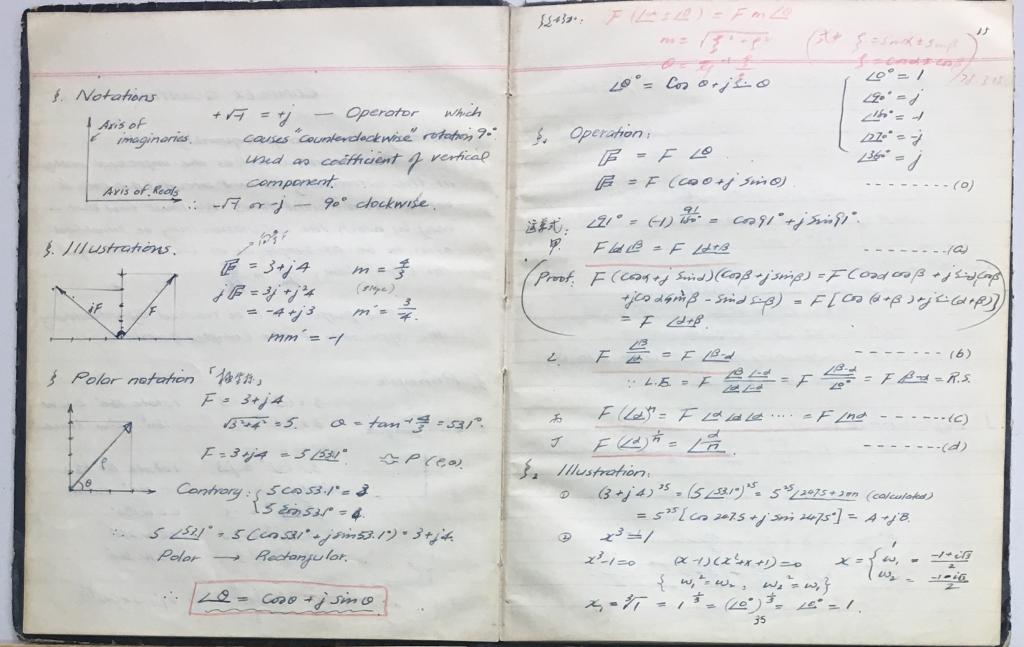 §. Notations
Axis of
imaginaries.
Axis of Reals
+√-1 = +j — Operator which
causes "counterclockwise" rotation 90°
used as coefficient of vertical
component.
∴ -√-1 or -j — 90° clockwise.
§. Illustrations.
F = 3+j4 m = 4/3
(slope)
jF = 3j+j²4
= -4+j3 m' = 3/4.
mm' = -1
jF F
§ Polar notation
F = 3+j4
√3²+4² = 5. θ = tan⁻¹ 4/3 = 53.1°.
F = 3+j4 = 5∠53.1°. P(ρ,θ).
ρ
θ
Contrary: { 5cos53.1° = 3
5 sin53.1° = 4.
∵ 5∠53.1° = 5(cos53.1°+jsin53.1°) = 3+j4.
Polar → Rectangular.
∴ ∠θ = cosθ+j sinθ
15
F(∠α±∠β) = Fm∠θ
∠θ° = Cosθ+jsinθ
∠0° = 1
∠90° = j
∠180° = -1
∠270° = -j
∠360° = j
§₁ Operation:
F = F∠θ
F = F(cosθ+j sinθ). --------(0)
∠91° = (-1)^91/180° = cos91°+jsin91°.
甲. F∠α∠β = F∠α+β --------(a)
(Proof: F(cosα+jsinα)(cosβ+jsinβ) = F(cosαcosβ+jsinαcosβ
+jcosαsinβ-sinαsinβ) = F[cos(α+β)+jsin(α+β)]
= F∠α+β.)
乙. F ∠β/∠α = F∠β-α --------(b)
∵ L.E. = F ∠β∠-α/∠α∠-α = F ∠β-α/∠0° = F∠β-α = R.S.
丙 F(∠α)ⁿ = F∠α∠α∠α ···· = F∠nα -------(c)
丁 F(∠α)^1/n = ∠α/n. -------(d)
§₂ Illustration:
① (3+j4)²⁵ = (5∠53.1°)²⁵ = 5²⁵∠247.5+2πn (calculated)
= 5²⁵[cos247.5+jsin247.5°] = A+jB.
② x³=1
x³-1=0 (x-1)(x²+x+1)=0 x = { 1
ω₁ = -1+i√3/2
ω₂ = -1-i√3/2
{ω₁²=ω₂, ω₂²=ω₁}
x₁ = ∛1 = 1^1/3 = (∠0°)^1/3 = ∠0° = 1.
35